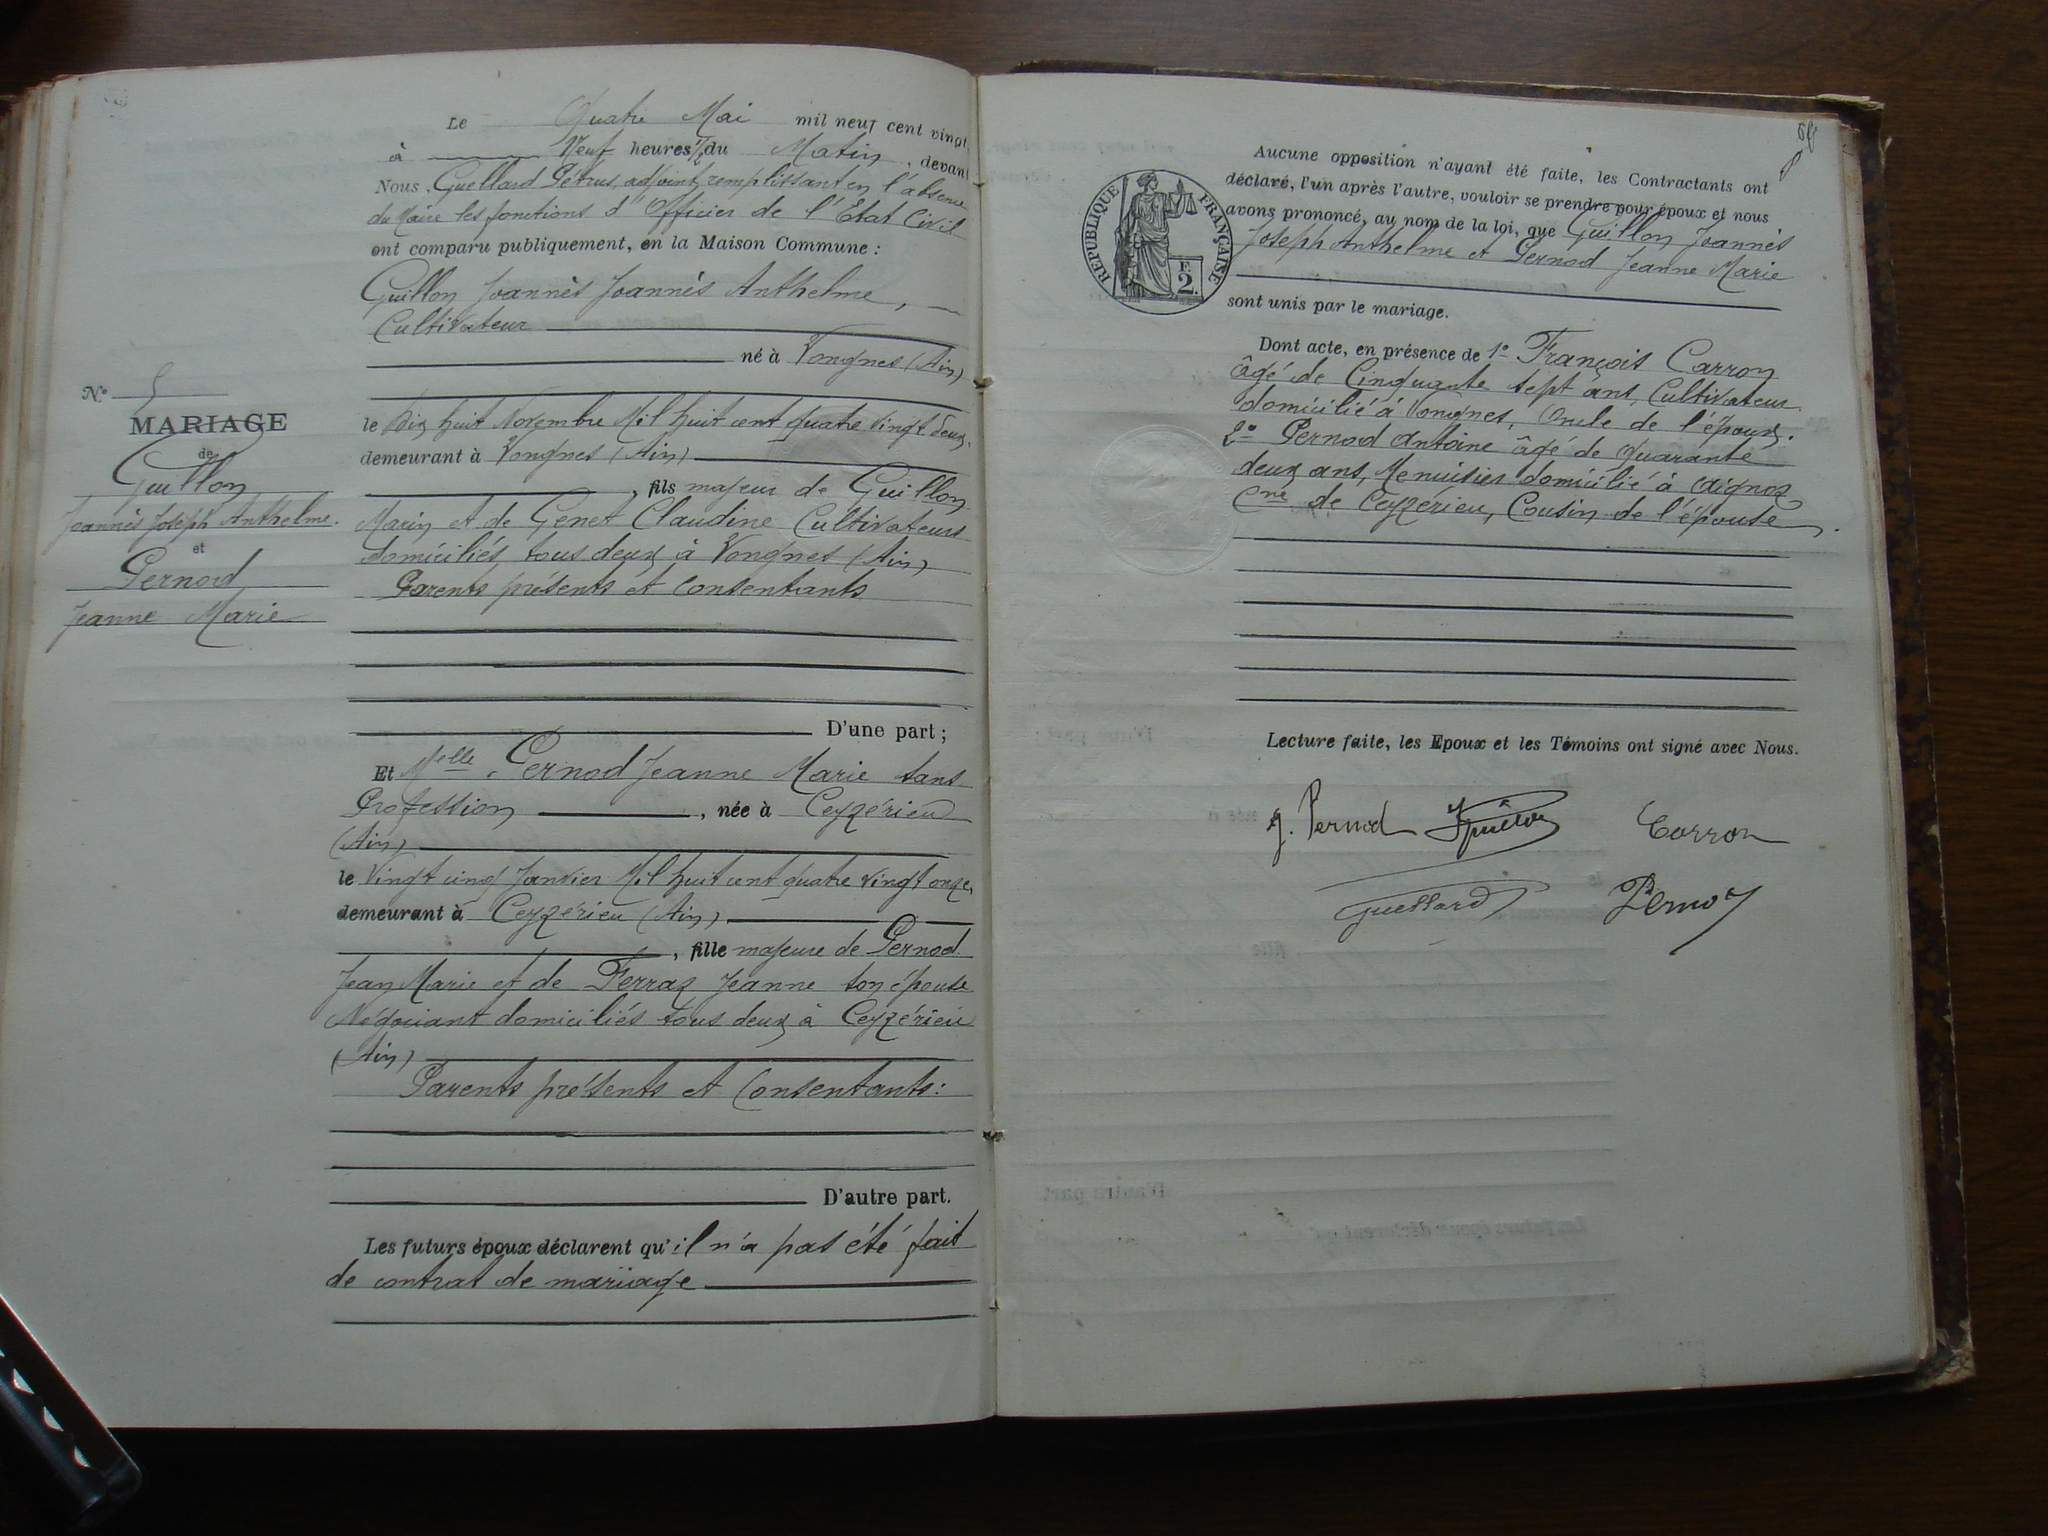 Le Quatre Mai mil neuf cent vingt
à Neuf heures ½ du Matin, devant
Nous, Guellard Pétrus, adjoint, remplissant en l'absence
du Maire les fonctions d'Officier de l'Etat Civil
ont comparu publiquement, en la Maison Commune :
Guillon Joannès Joannès Anthelme,
Cultivateur
né à Vongnes (Ain)
le Dix huit Novembre Mil huit cent quatre vingt deux,
demeurant à Vongnes (Ain)
, fils majeur de Guillon
Marin et de Genet Claudine Cultivateurs
domiciliés tous deux à Vongnes (Ain)
Parents présents et Consentants
D'une part ;
Et Melle Pernod Jeanne Marie sans
Profession, née à Ceyzérieu
(Ain)
le Vingt cinq Janvier Mil huit cent quatre vingt onze,
demeurant à Ceyzérieu (Ain)
, fille majeure de Pernod
Jean Marie et de Ferraz Jeanne son épouse
Négociant domiciliés tous deux à Ceyzérieu
(Ain)
Parents présents et Consentants :
D'autre part.
Les futurs époux déclarent qu'il n'a pas été fait
de contrat de mariage
N° 5
MARIAGE
de
Guillon
Joannès Joseph Anthelme.
et
Pernod
Jeanne Marie
REPUBLIQUE FRANÇAISE
F
2.
Aucune opposition n'ayant été faite, les Contractants ont
déclaré, l'un après l'autre, vouloir se prendre pour époux et nous
avons prononcé, au nom de la loi, que Guillon Joannès
Joseph Anthelme et Pernod Jeanne Marie
sont unis par le mariage.
Dont acte, en présence de 1° François Carron
âgé de Cinquante sept ans, Cultivateur
domicilié à Vongnes, Oncle de l'époux.
2° Pernod Antoine âgé de Quarante
deux ans, Menuisier domicilié à Aignoz
Cne de Ceyzérieu, Cousin de l'épouse.
Lecture faite, les Epoux et les Témoins ont signé avec Nous.
J. Pernod JGuillon Carron
Guellard Pernod